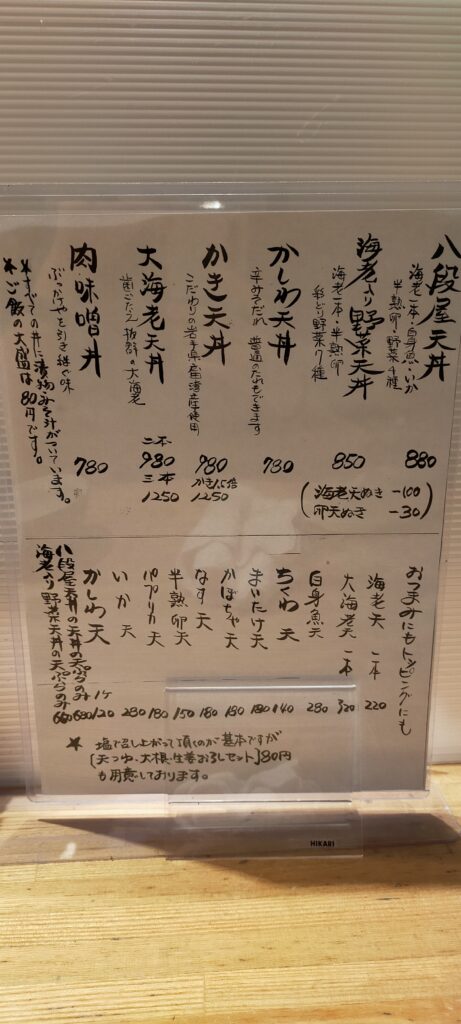 八段屋天丼
海老一本・白身魚・いか
半熟卵・野菜4種
880
海老入り野菜天丼
海老一本・半熟卵
彩どり野菜7種
850
(海老天ぬき -100
卵天ぬき -30)
かしわ天丼
辛みそだれ 普通のたれもできます
780
かき天丼
こだわりの岩手県広田湾産使用
980
かき1.5倍
1250
大海老天丼
歯ごたえ抜群の大海老
二本
980
三本
1250
肉味噌丼
ぶっかけやを引き継ぐ味
780
＊すべての丼に漬物みそ汁がついています。
＊ご飯の大盛は80円です。
おつまみにもトッピングにも
海老天 一本 220
大海老天 一本 320
白身魚天 280
ちくわ天 140
まいたけ天 180
かぼちゃ天
なす天 180
半熟卵天 150
パプリカ天 180
いか天 280
かしわ天 1ケ 120
八段屋天丼の天ぷらのみ 680
海老入り野菜天丼の天ぷらのみ 660
★ 塩で召し上がって頂くのが基本ですが
[天つゆ、大根・生姜おろしセット]80円
も用意しております。
HIKARI